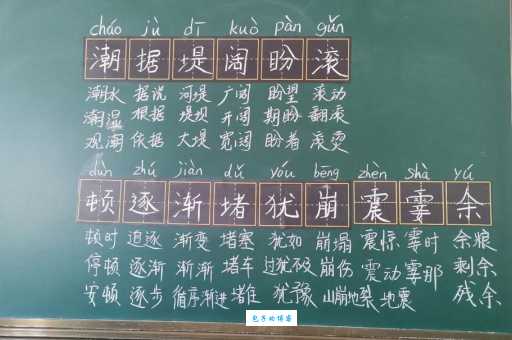 cháo jù dī kuò pàn gǔn
潮 据 堤 阔 盼 滚
潮水 据说 河堤 广阔 盼望 滚动
潮湿 根据 堤坝 开阔 期盼 翻滚
观潮 依据 大堤 宽阔 盼着 滚烫
dùn zhú jiàn dǔ yóu bēng zhèn shà yú
顿 逐 渐 堵 犹 崩 震 霎 余
顿时 追逐 渐变 堵塞 犹如 崩塌 震惊 霎时 余粮
停顿 逐渐 渐渐 堵车 过犹不及 崩伤 震动 霎那 剩余
安顿 逐步 循序渐进 堵住 犹豫 山崩地裂 地震 残余
包子的博客